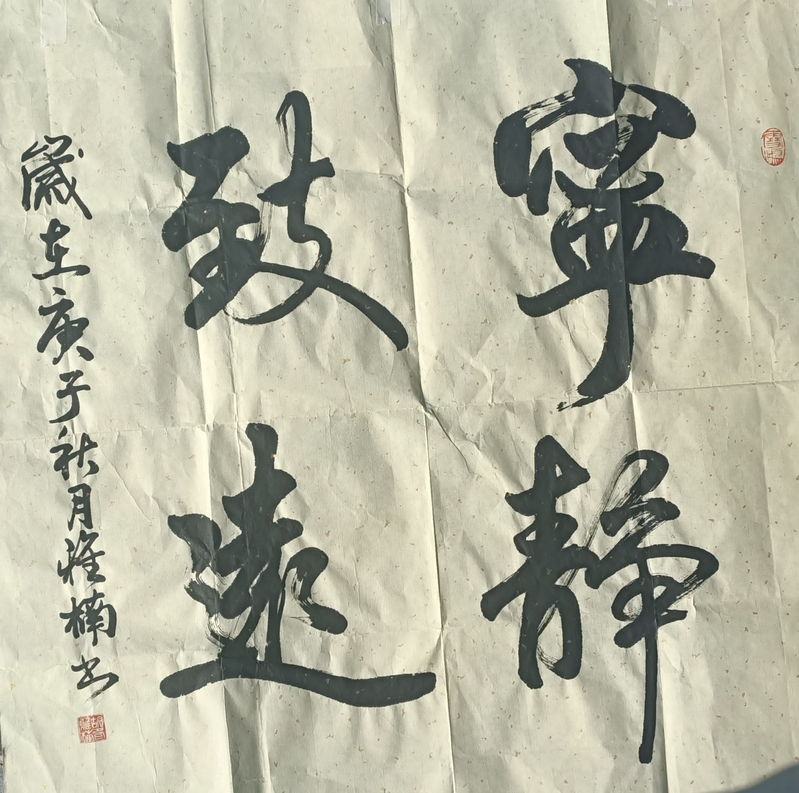 寧靜
致遠
歲在庚子秋月雅楠书